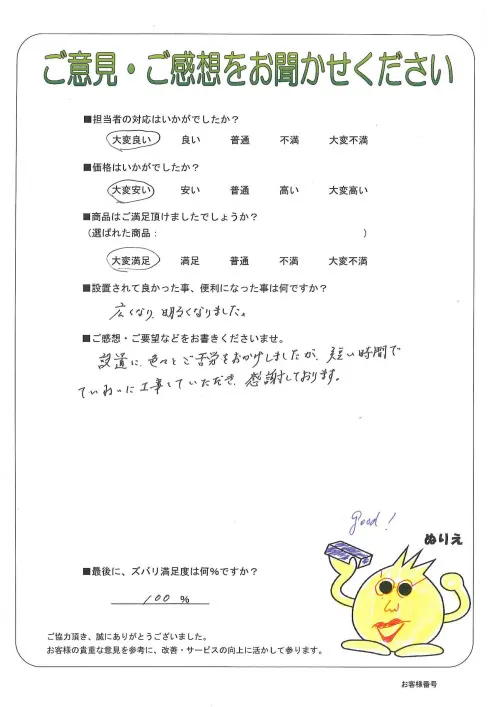 ご意見・ご感想をお聞かせください
■担当者の対応はいかがでしたか？
大変良い 良い 普通 不満 大変不満
■価格はいかがでしたか？
大変安い 安い 普通 高い 大変高い
■商品はご満足頂けましたでしょうか？
（選ばれた商品： ）
大変満足 満足 普通 不満 大変不満
■設置されて良かった事、便利になった事は何ですか？
広くなり、明るくなりました。
■ご感想・ご要望などをお書きくださいませ。
設置に、色々とご苦労をおかけしましたが、短い時間で
ていねいに工事していただき、感謝しております。
good!
ぬりえ
■最後に、ズバリ満足度は何％ですか？
100 %
ご協力頂き、誠にありがとうございました。
お客様の貴重な意見を参考に、改善・サービスの向上に活かして参ります。
お客様番号